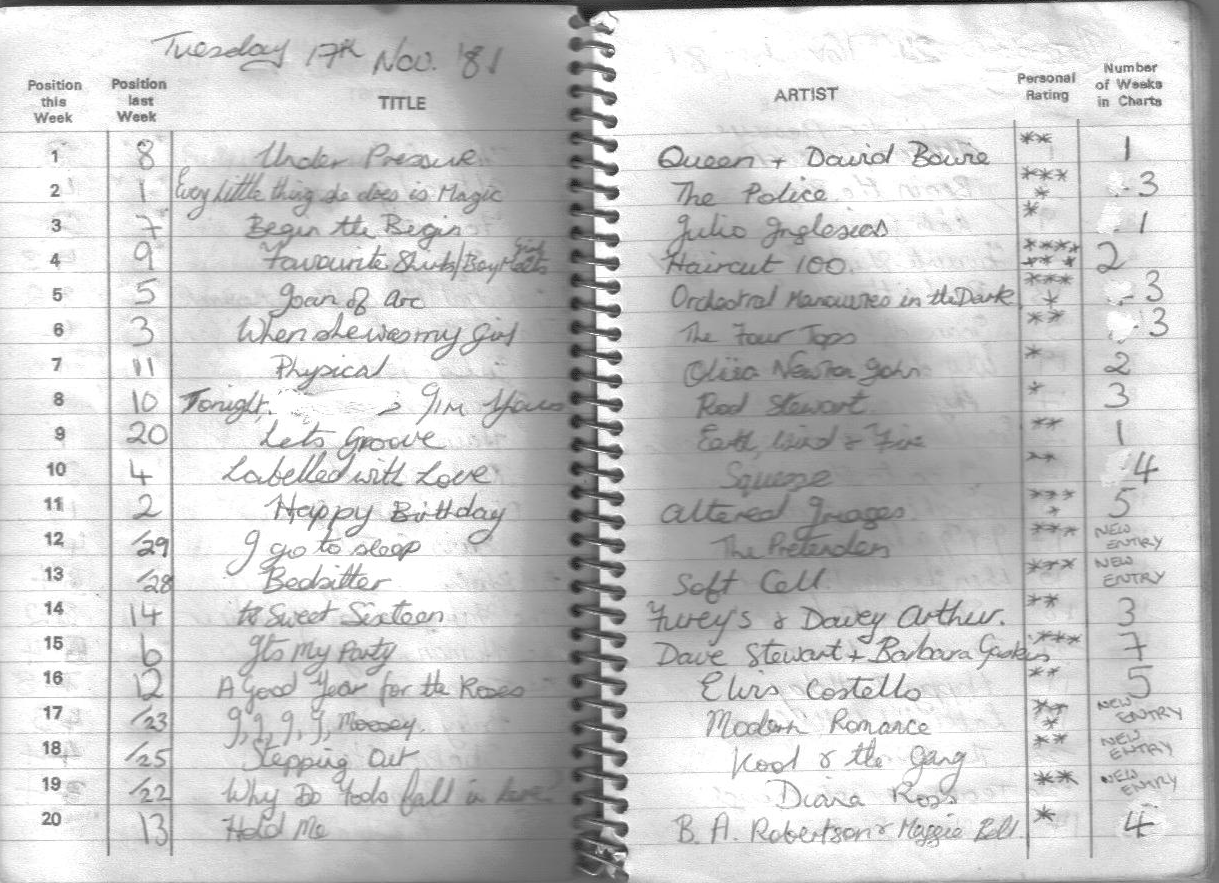 Tuesday 17th Nov. '81
Position this Week Position last Week TITLE ARTIST Personal Rating Number of Weeks in Charts
1 8 Under Pressure Queen + David Bowie ** 1
2 1 Evey little thing she does is Magic The Police **** 3
3 7 Begin the Begin Julio Inglesias * 1
4 9 Favourite Shirts/Boy Meets Girl Haircut 100 ******* 2
5 5 Joan of Arc Orchestral Manouvres in the Dark **** 3
6 3 When she was my girl The Four Tops ** 3
7 11 Physical Olivia Newton John * 2
8 10 Tonight, I'm Yours Rod Stewart * 3
9 20 Lets Groove Earth, Wind & Fire ** 1
10 4 Labelled with Love Squeeze ** 4
11 2 Happy Birthday Altered Images **** 5
12 /29 I go to sleep The Pretenders *** NEW ENTRY
13 /28 Bedsitter Soft Cell *** NEW ENTRY
14 14 Sweet Sixteen Furey's & Davey Arthur. ** 3
15 6 Its my Party Dave Stewart + Barbara Gaskin *** 7
16 12 A Good Year for the Roses Elvis Costello ** 5
17 /23 Modern Romance *** NEW ENTRY
18 /25 Stepping Out Kool & the Gang ** NEW ENTRY
19 /22 Why Do fools fall in love? Diana Ross ** NEW ENTRY
20 13 Hold Me B. A. Robertson & Maggie Bell * 4